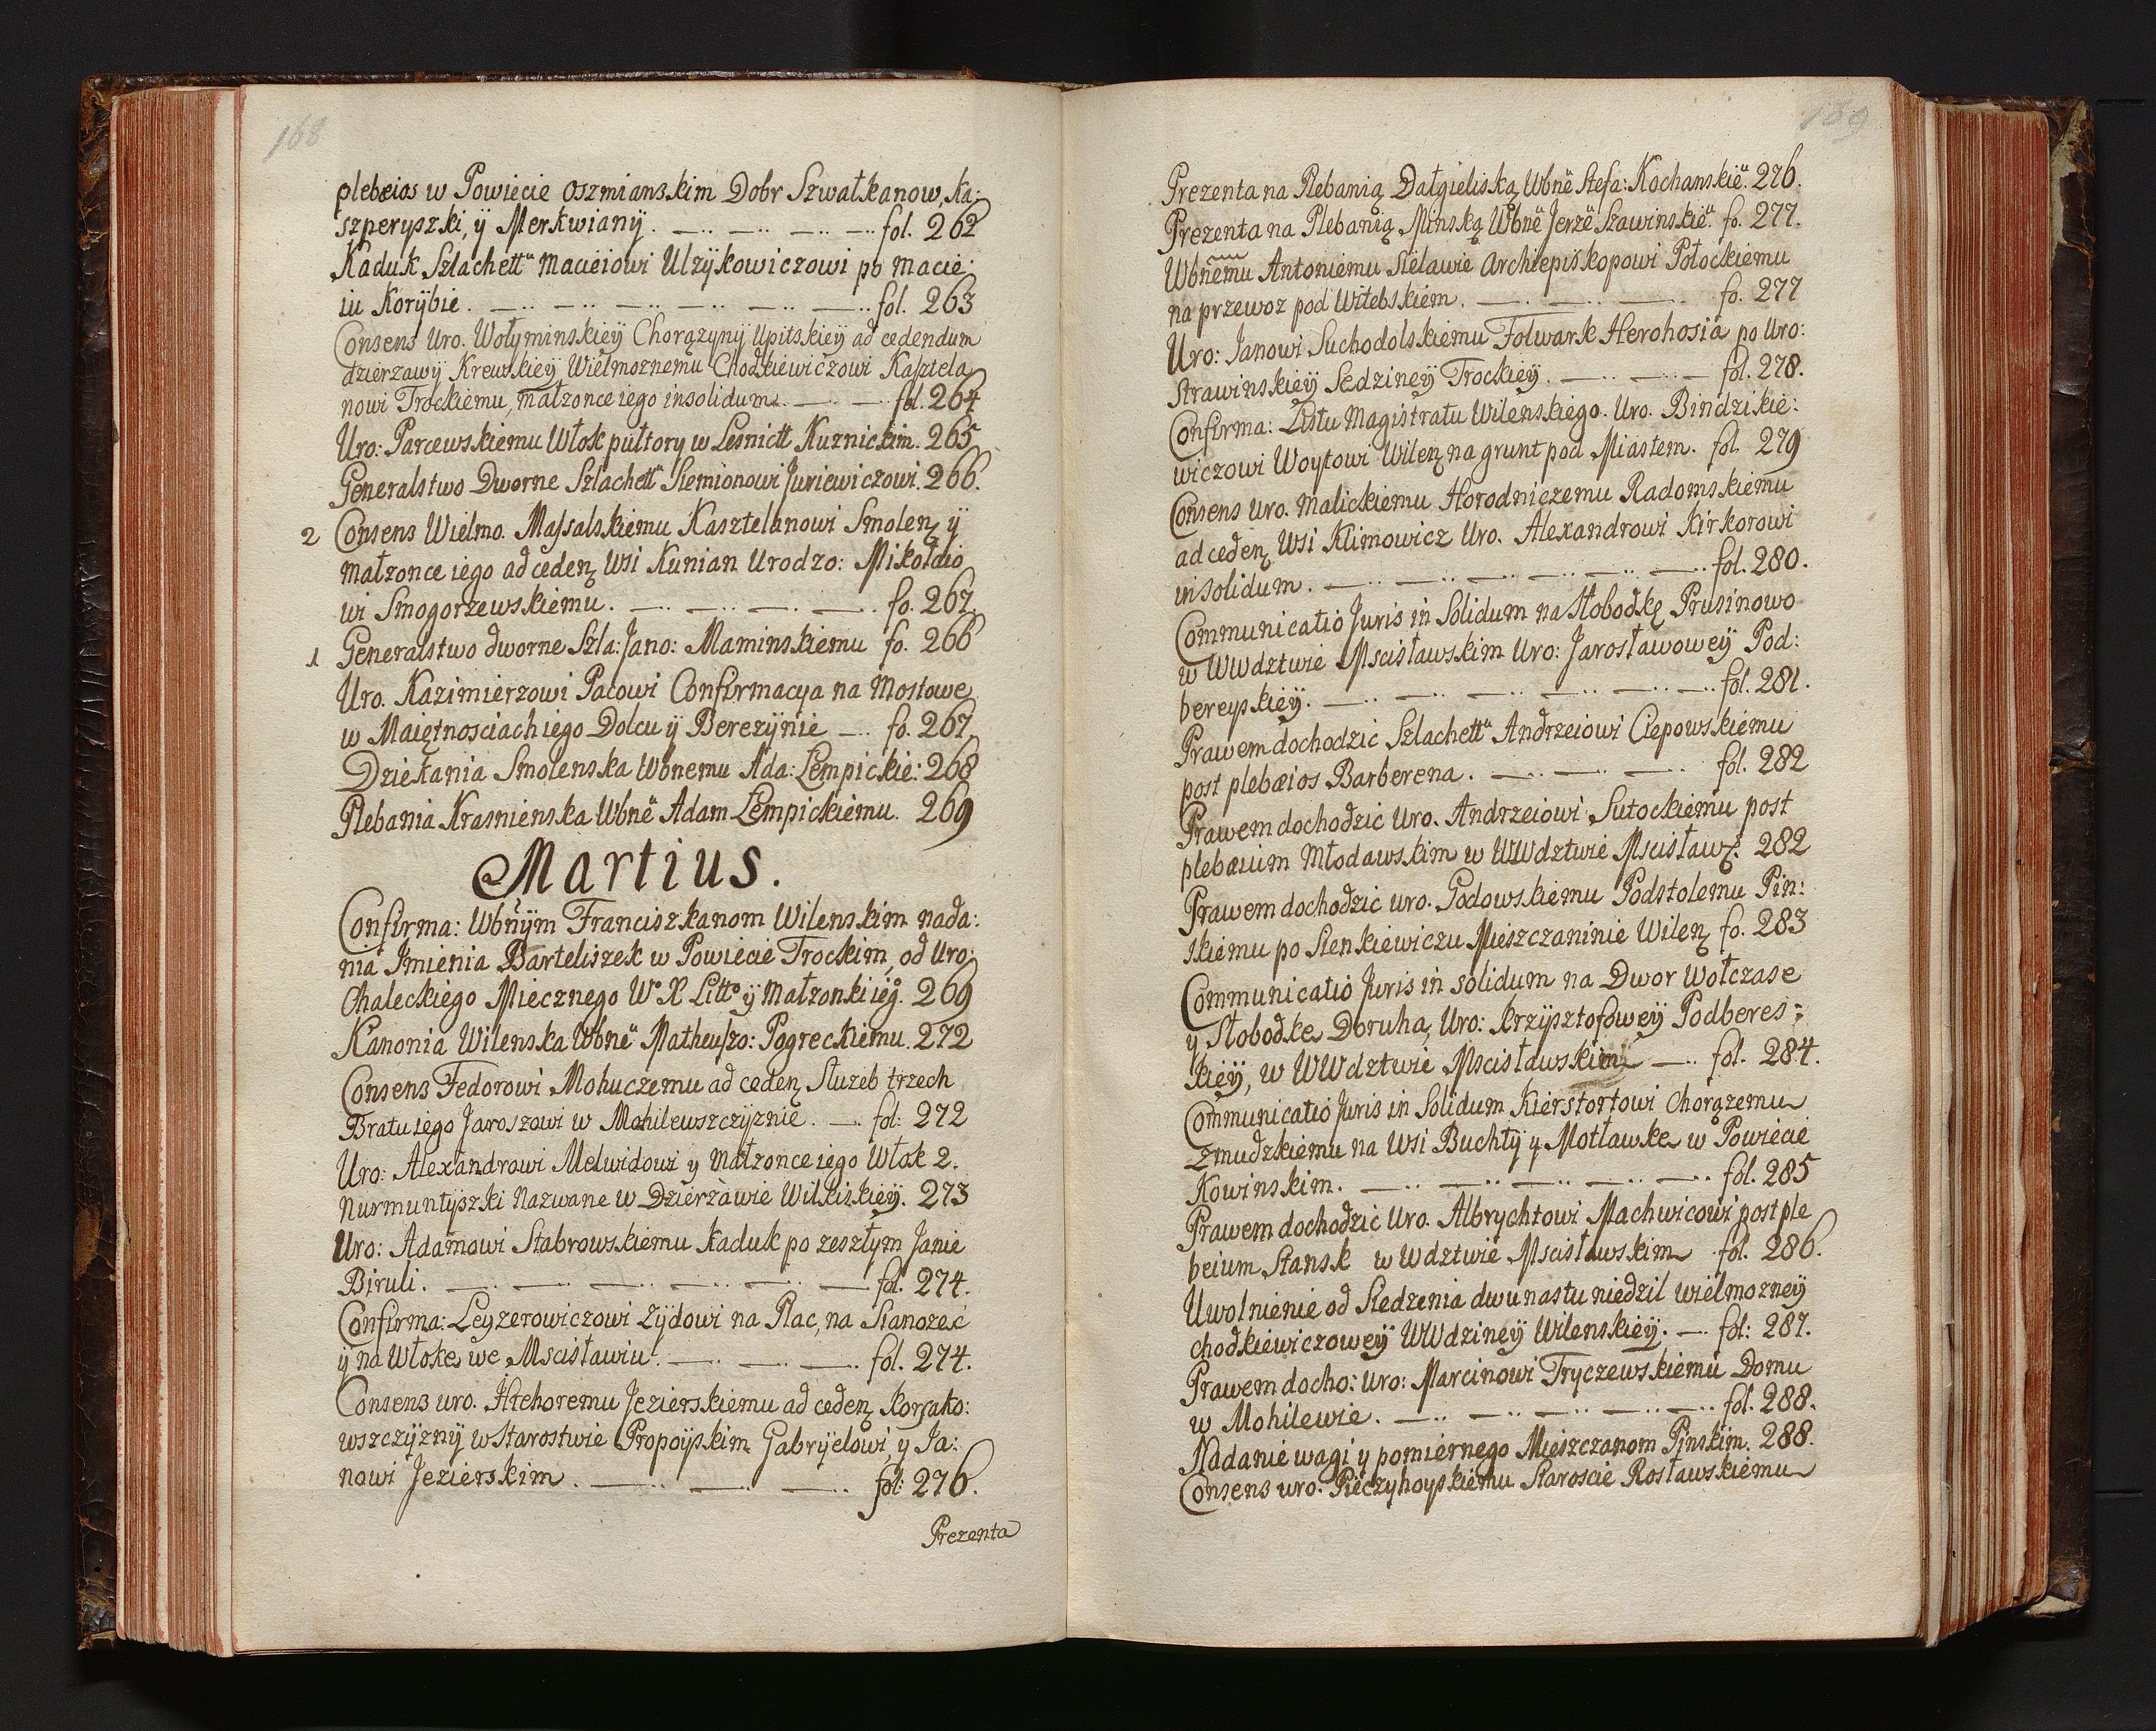 168
plebæios w Powiecie Oszmianskim Dobr Szwałkanow, Ka:
szperyszki, ÿ Merkwianÿ. fol. 262
Kaduk Szlachettᵘ Macieiowi Ulzÿkowiczowi po Macie:
iu Korÿbie. fol. 263
Consens Uro. Wołyminskieÿ Chorązynÿ Upitskieÿ ad cedendum
dzierzawÿ Krewskieÿ Wielmoznemu Chodkiewiczowi Kasztela
nowi Trockiemu, małzonce iego insolidum. fol. 264
Uro: Parcewskiemu Włok pułtory w Lesnictt Kuznickim. 265
Generalstwo Dworne Szlachettᵘ Siemionowi Juriewiczowi. 266.
2 Consens Wielmo. Massalskiemu Kasztelanowi Smolen ÿ
małzonce iego ad ceden Wsi Kunian Urodzo: Mikołaio
wi Smogorzewskiemu. fo. 267.
1 Generalstwo dworne Szla: Jano: Maminskiemu fo. 266
Uro. Kazimierzowi Pacowi Confirmacya na Mostowe
w Maiętnosciach iego Dolcu ÿ Berezÿnie fo. 267
Dziekania Smolenska Wbnemu Ada: Łempickie: 268
Plebania Krasnienska Wbneᵘ Adam Łempickiemu. 269
Martius.
Confirma: Wbnÿm Franciszkanom Wilenskim nada:
nia Jmienia Barteliszek w Powiecie Trockim, od Uro:
Chaleckiego Miecznego Wº X Littº ÿ Małzonki ieg. 269
Kanonia Wilenska Wbneᵘ Matheuszo: Pogreckiemu. 272
Consens Fedorowi Mohuczemu ad ceden Słuzeb trzech
Bratu iego Jaroszowi w Mohilewszczÿznie. fol: 272
Uro: Alexandrowi Melwidowi y Małzonce iego Włok 2.
Nurmuntÿszki Nazwane w Dzierzawie Wilkiskieÿ. 273
Uro: Adamowi Stabrowskiemu Kaduk po zeszłym Janie
Biruli. fol. 274.
Confirma: Leyzerowiczowi Zÿdowi na Plac, na Sianozeć
ÿ na Włoke we Mscisławiu. fol. 274.
Consens uro. Hrehoremu Jezierskiemu ad ceden Korsako:
wszczÿznÿ w Starostwie Propoÿskim Gabryelowi y Ja:
nowi Jezierskim. fol: 276.
Prezenta
169
Prezenta na Plebanią Dałgieliską Wbneᵘ Stefa: Kochanskieᵘ. 276.
Prezenta na Plebanią Minską Wbneᵘ Jerzeᵘ Szawinskieᵘ. fo. 277.
Wbnemu Antoniemu Sielawie Archiepiskopowi Połockiemu
na przewoz pod Witebskiem. fo. 277
Uro: Janowi Suchodolskiemu Folwark Herohosia po Uro:
Strawinskieÿ Sedzineÿ Trockieÿ. fol. 278.
Confirma: Listu Magistratu Wilenskiego. Uro. Bindzikie:
wiczowi Woytowi Wilen na grunt pod Miastem. fol. 279
Consens uro. Malickiemu Horodniczemu Radomskiemu
ad ceden Wsi Klimowicz Uro. Alexandrowi Kirkorowi
in solidum. fol. 280.
Communicatio Juris in Solidum na Słobodkę Prusinowo
w WWdztwie Mscisławskim Uro: Jarosławoweÿ Pod:
bereyskieÿ. fol. 281.
Prawem dochodzic Szlachettᵘ Andrzeiowi Ciepowskiemu
post plebæios Barberena. fol. 282
Prawem dochodzic Uro. Andrzeiowi Sutockiemu post
plebæium Młodawskim w WWdztwie Mscisław: 282
Prawem dochodzic uro. Godowskiemu Podstolemu Pin:
skiemu po Sienkiewiczu Mieszczaninie Wilen fo. 283
Communicatio Juris in solidum na Dwor Wołczase
y Słobodke Doruha, Uro: Krzÿsztofoweÿ Podberes:
kieÿ, w WWdztwie Mscisławskim fol. 284.
Communicatio Juris in Solidum Kierstortowi Chorązemu
Zmudzkiemu na Wsi Buchtÿ y Motławke w Powiecie
Kowinskim. fol. 285
Prawem dochodzic Uro. Albrychtowi Machwicowi post ple
beium Stansk w Wdztwie Mscisławskim fol. 286.
Uwolnienie od Siedzenia dwunastu niedzil wielmozneÿ
chodkiewiczoweÿ WWdzineÿ Wilenskieÿ. fol: 287.
Prawem docho: uro: Marcinowi Tryczewskiemu Domu
w Mohilewie. fol. 288.
Nadanie wagi y pomiernego Mieszczanom Pinskim. 288.
Consens uro. Pieczyhoyskiemu Staroscie Rosławskiemu